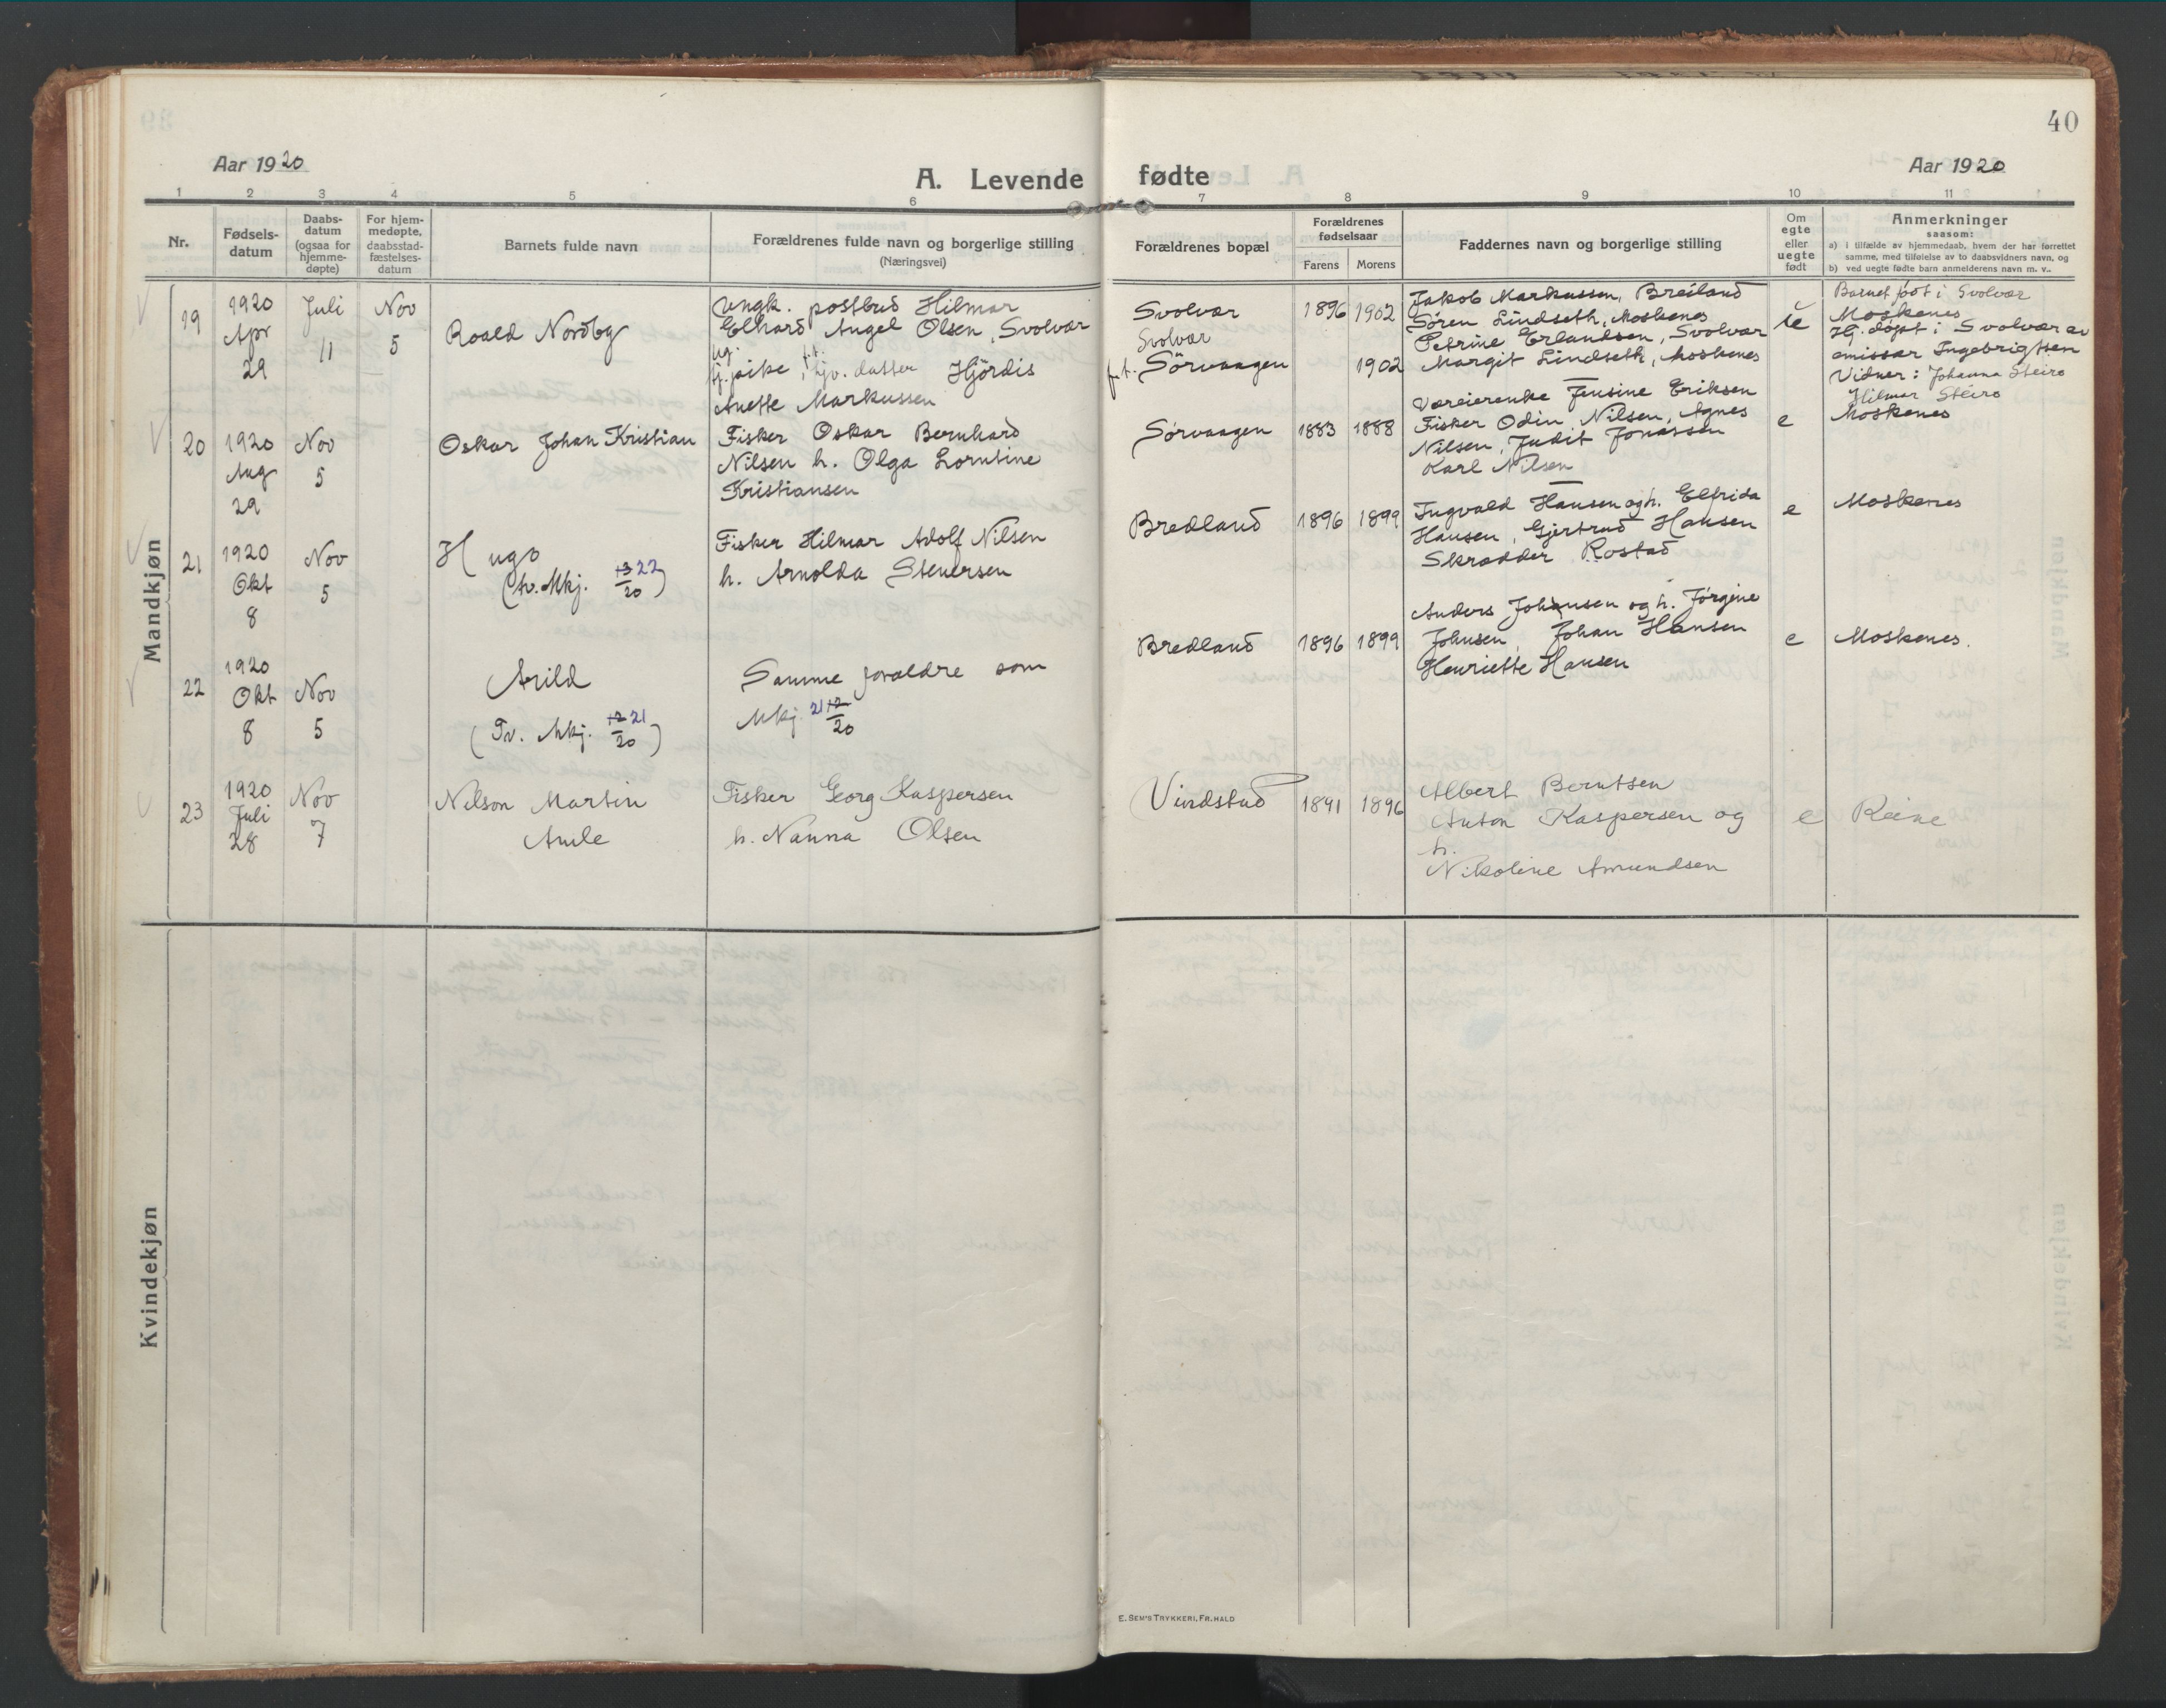 40
Aar 1920
A. Levende
fødte
Aar 1920
1 2 3 4 5 6 7 8 9 10 11
Nr.
Fødsels-
datum
Daabs-
datum
(ogsaa for
hjemme-
døpte)
For hjem-
medøpte,
daabsstad-
fæstelses-
datum
Barnets fulde navn
Forældrenes fulde navn og borgerlige stilling
(Næringsvei)
Forældrenes bopæl
Forældrenes
fødselsaar
Farens
Morens
Faddernes navn og borgerlige stilling
Om
egte
eller
uegte
født
Anmerkninger
saasom:
a) i tilfælde av hjemmedaab, hvem der har førrettet
samme, med tilføielse av to daabsvidners navn, og
b) ved uegte fødte barn anmelderens navn m. v..
Mandkjøn
19
1920
Apr
29
Juli
11
Nov
5
Roald Nordby
Ungk. postbud Hilmar
Elhard Angel Olsen, Svolvær
ug.
pike, datter Hjördis
Anette Markussen
Svolvær
Svolvær
f.t. Sörvaagen
1896
1902
1902
Jakob Markussen, Breiland
Søren Lindseth, Moskenes
Petrine Erlandsen, Svolvær
Margit Lindseth, Moskenes
ue
Barnet født i Svolvær
Moskenes
Hj. døpt i Svolvær av
emissær Ingebrigtsen
Vidner: Johanna Steiro
Hilmar Steiro
20
1920
Aug
29
Nov
5
Oskar Johan Kristian
Fisker Oskar Bernhard
Nilsen h. Olga Lorntine
Kristiansen
Sörvaagen
1883
1888
Væreierenke Jensine Eriksen
Fisker Odin Nilsen, Agnes
Nilsen, Judit Jonassen
Karl Nilsen
e
Moskenes
21
1920
Okt
8
Nov
5
Hugo
(tv. Mkj. 22/20)
Fisker Hilmar Adolf Nilsen
h. Arnolda Stenersen
Bredland
1896
1899
Ingvald Hansen og h. Elfrida
Hansen, Gjertrud Hansen
Skrædder Rostad
e
Moskenes
22
1920
Okt
8
Nov
5
Arild
(Tv. Mkj. 21/20)
Samme forældre som
Mkj. 21/20
Bredland
1896
1899
Anders Johansen og h. Jörgine
Johnsen, Johan Hansen
Henriette Hansen
e
Moskenes.
23
1920
Juli
28
Nov
7
Nilson Martin
Amle
Fisker Georg Kaspersen
h. Nanna Olsen
Vindstad
1891
1896
Albert Berntsen
Anton Kaspersen og
h.
Nikoline Amundsen
e
Reine
Kvindekjøn
E. SEM'S TRYKKERI, FR. HALD